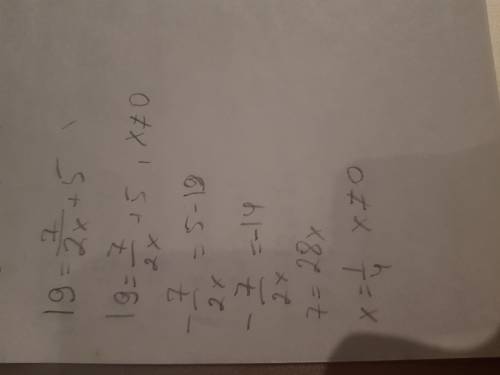 19 = 7/2x + 5
19 = 7/2x + 5, x ≠ 0
- 7/2x = 5 - 19
- 7/2x = -14
7 = 28x
x = 1/4 x ≠ 0